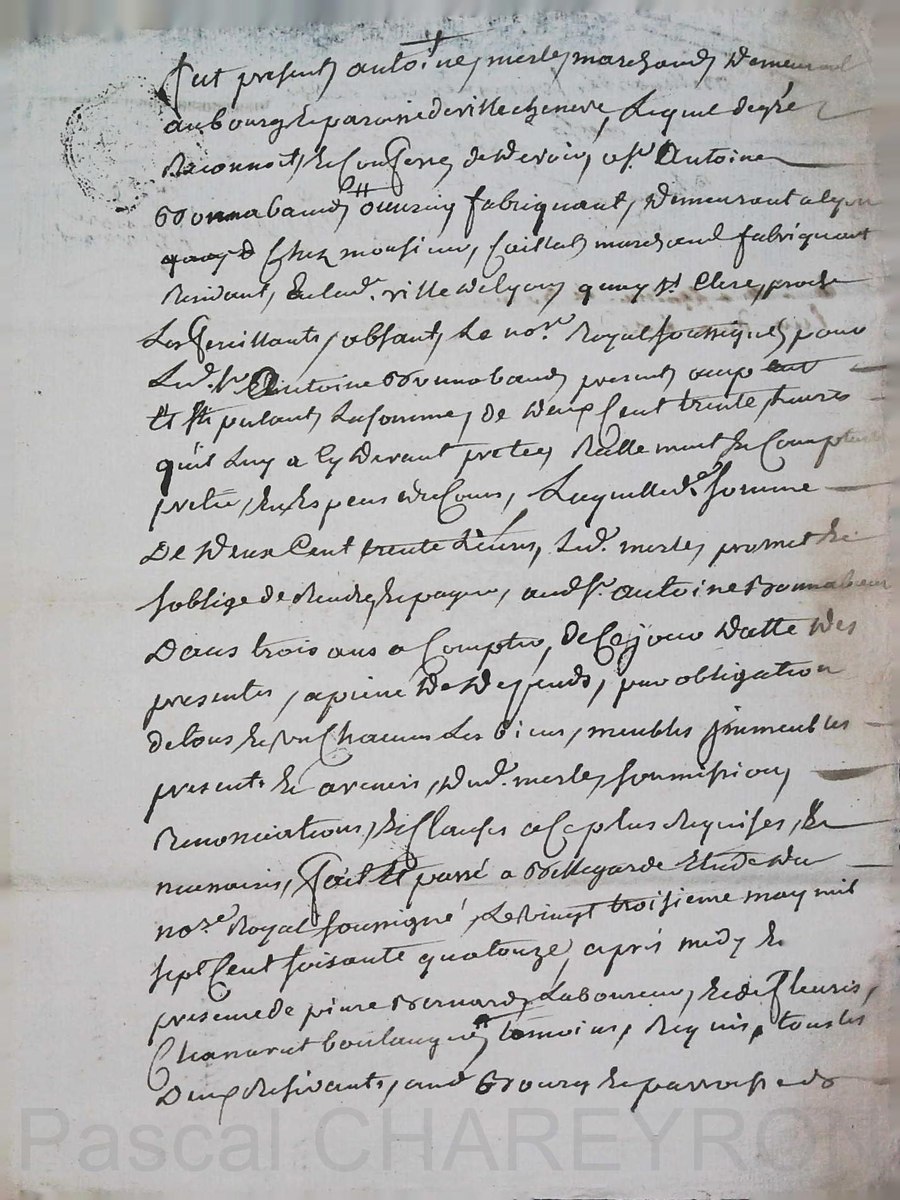 fut present antoine merle marchand demeurant
au bourg & paroisse de villecheneve, Lequel de gré
Reconnoit, & Confesse de devoir, a Sr. Antoine
Bonnabaud ouvrier fabriquant, demeurant a lyon
Chez monsieur, marchand fabriquant
Residant, En lad. ville de lyon quay St Clere, proche
Les feuillants, absant, Le nore. Royal soussigné pour
Led. Sr. Antoine Bonnabaud present accep
et stipulant La somme de deux Cent trente, livres
quil luy a Cy devant pretée Réllement & Comptant
pretée, En Espece du Cours, Laquelle de. somme
De deux Cent trente Livres, Led. merle promet &
soblige de Rendre & payer, aud Sr. antoine Bonnabaud
Dans trois ans a Compter, de Ce jour datte des
presentes, a peine de depends, par obligation
de tous & un Chacun Les biens, meubles immeubles
presents & avenir, dud. merle, soumission,
Renonciations, & Clauses a Ce plus Requises, &
necessaires, fait et passé a Bellegarde Etude du
nore. Royal soussigné, Le vingt troisieme may mil
sept Cent soisante quatorze, apres midy En
presence de piere Bernard, Laboureur, & de fleuris,
Chanavat boulanger temoins, Requis, tous les
Deux Residants, aud Bourg & parroisse de
Pascal CHAREYRON